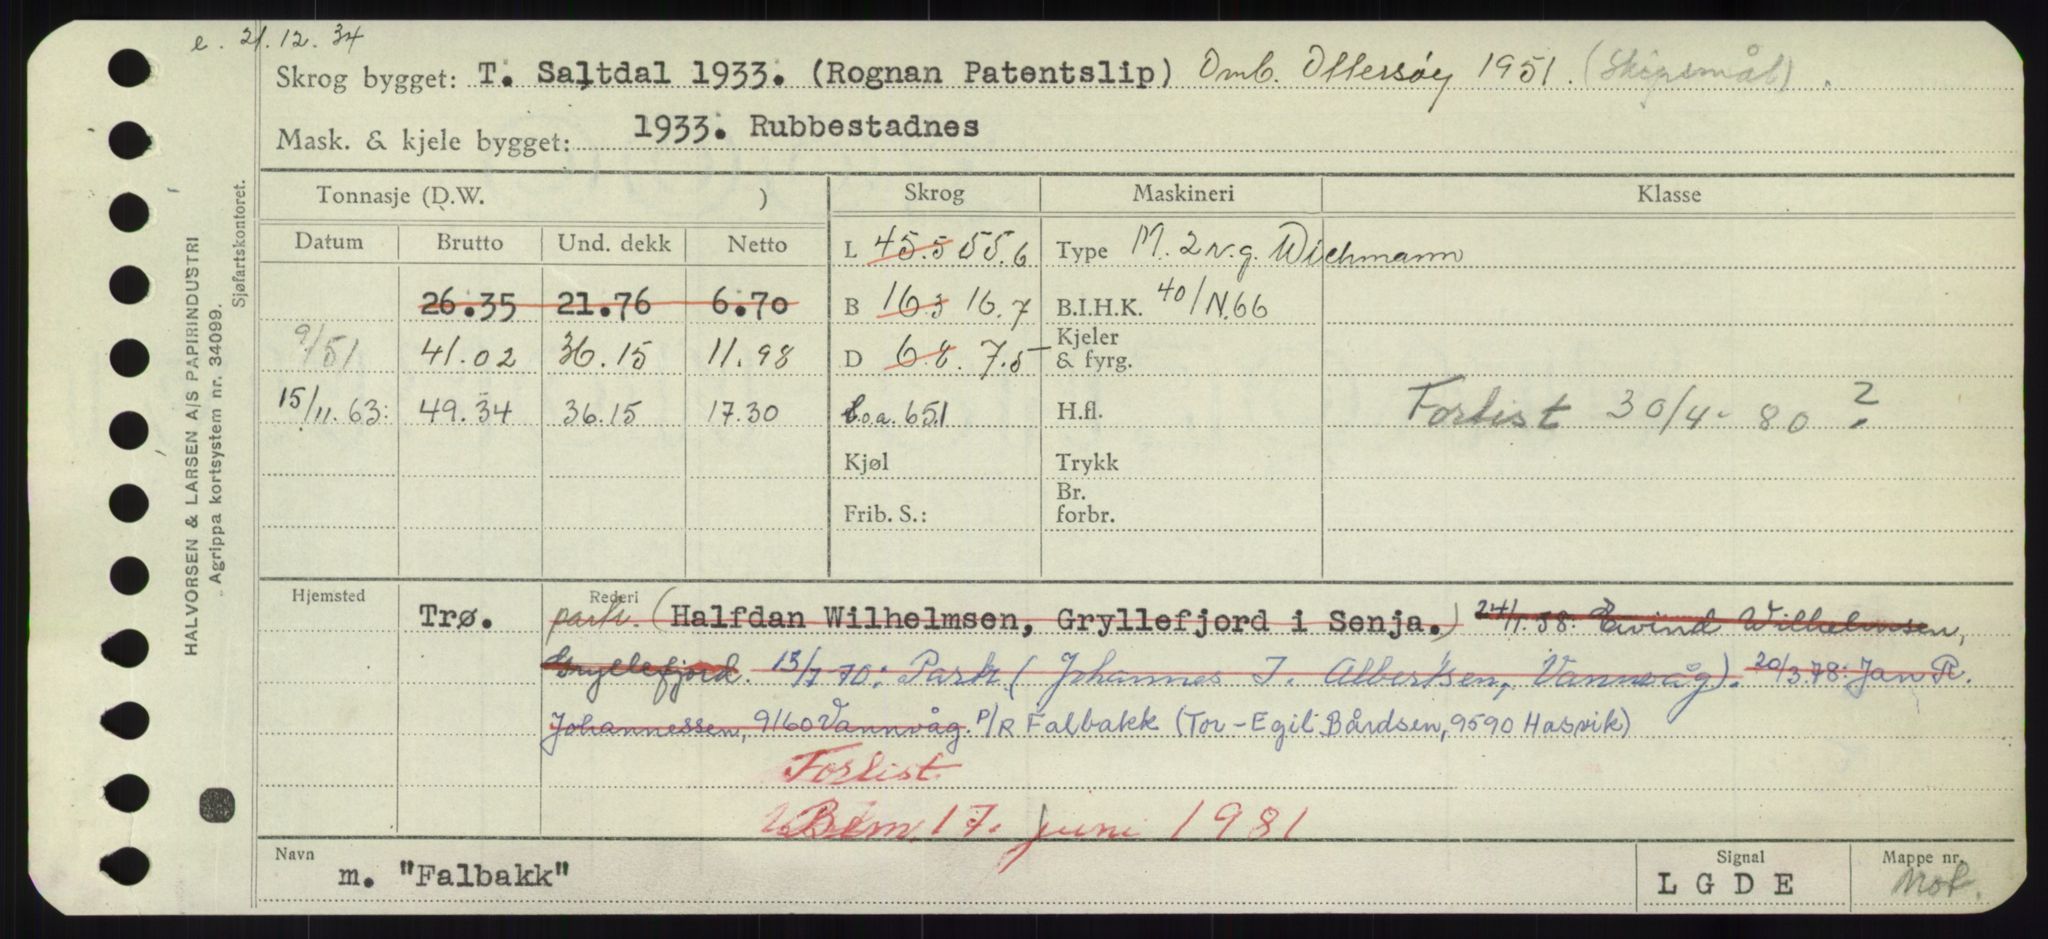 e. 21.12.34
Skrog bygget: T. Saltdal 1933. (Rognan Patentslip) Omb. Ottersøy 1951. (Skipsmål).
Mask. & kjele bygget: 1933. Rubbestadnes
Tonnasje (D.W. ) Skrog Maskineri Klasse
Datum Brutto Und. dekk Netto
L 45.5 55.6 Type M. 2 v.g. Wichmann
26.35 21.76 6.70 B 16.3 16.7 B.I.H.K. 40/N.66
9/51 41.02 36.15 11.98 D 6.8. 7.5 Kjeler & fyrg.
15/11.63: 49.34 36.15 17.30 L.o.a. 65.1 H.fl. Forlist 30/4-80 ?
Kjøl Trykk
Frib. S.: Br. forbr.
Hjemsted Rederi
Trø. partr. (Halfdan Wilhelmsen, Gryllefjord i Senja.) 24/1.58: Eivind Wilhelmsen,
Gryllefjord. 13/7 70: Partr. (Johannes J. Albertsen, Vannvåg). 20/3.78: Jan R.
Johannessen, 9160 Vannvåg. P/R Falbakk (Tor-Egil Bårdsen, 9590 Hasvik)
Forlist
17. juni 1981
Navn Signal Mappe nr.
m. "Falbakk" L G D E Mot.
HALVORSEN & LARSEN A/S PAPIRINDUSTRI
Agrippa kortsystem nr. 34099.
Sjøfartskontoret.